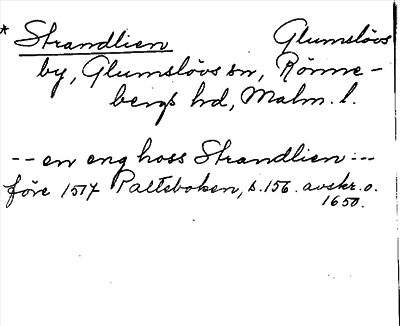 * Strandlien Glumslövs
by, Glumslövs sn, Rönne-
bergs hd, Malm. l.
-- en eng hoss Strandlien --
före 1517 Palteboken, s. 156. avskr. o.
1650.